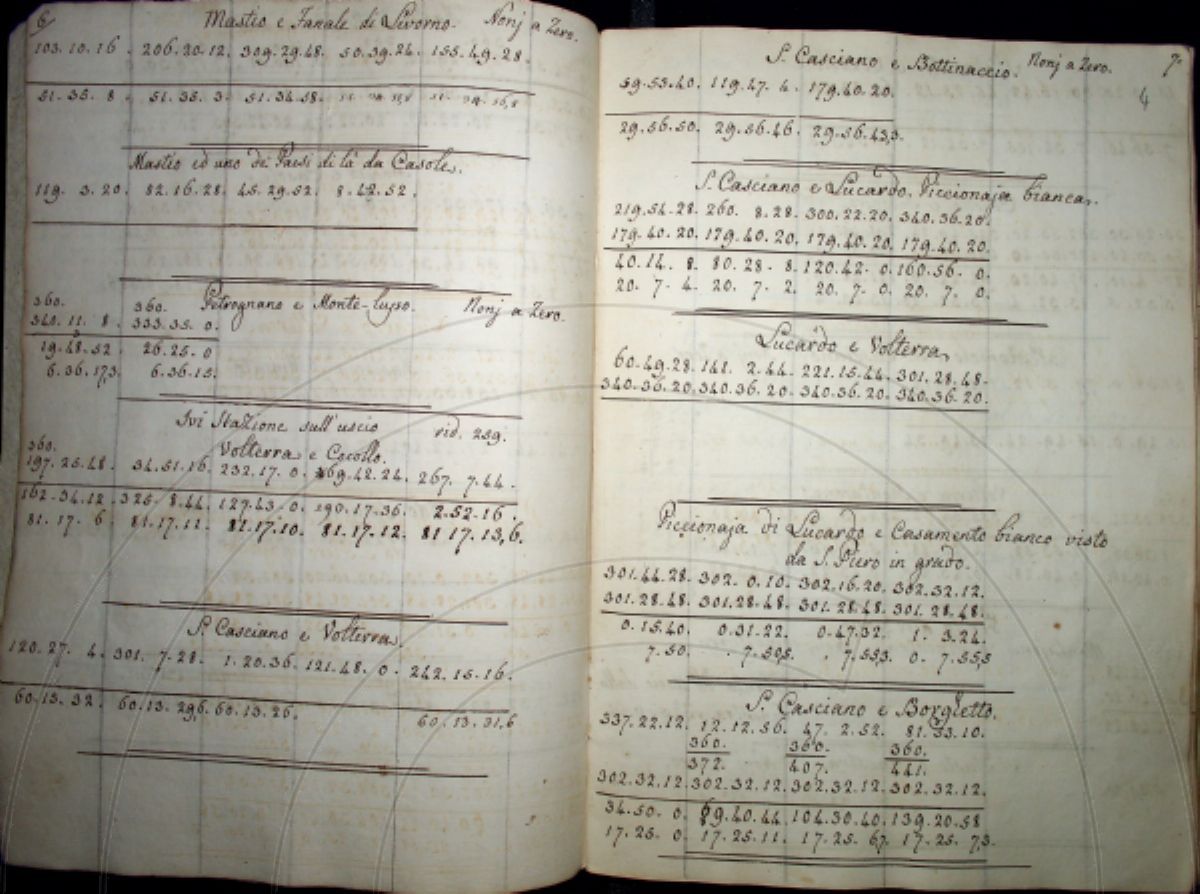 6
Mastio e Fanale di Livorno. Nonj a Zero.
103.10.16. 206.20.12. 309.29.48. 50.39.24. 155.49.28.
51.35. 8. 51.35. 3. 51.34.58.
Mastio ed uno de Paesi di là da Casole.
119. 3.20. 82.16.28. 45.29.52. 8.42.52.
Petrognano e Monte-lupo. Nonj a Zero.
360. 360.
340.11. 8. 333.35. 0.
19.48.52. 26.25. 0
6.36.17,3. 6.36.15.
Ivi Stazione sull'uscio rid. 259.
Volterra e Cocollo.
360.
197.25.48. 34.51.16. 232.17. 0. 69.42.24. 267. 7.44.
162.34.12. 325. 8.44. 127.43. 0. 290.17.36. 2.52.16.
81.17. 6. 81.17.11. 81.17.10. 81.17.12. 81 17.13,6.
S. Casciano e Volterra.
120.27. 4. 301. 7.28. 1.20.36. 121.48. 0. 242.15.16.
60.13.32. 60.13.29,6. 60.13.26. 60.13.31,6
7.
4
S. Casciano e Bottinaccio. Nonj a Zero.
59.53.40. 119.47. 4. 179.40.20.
29.56.50. 29.56.46. 29.56.43,3.
S. Casciano e Lucardo, Piccionaja bianca.
219.54.28. 260. 8.28. 300.22.20. 340.36.20.
179.40.20. 179.40.20. 179.40.20. 179.40.20.
40.14. 8. 80.28. 8. 120.42. 0. 160.56. 0.
20. 7. 4. 20. 7. 2. 20. 7. 0. 20. 7. 0.
Lucardo e Volterra.
60.49.28. 141. 2.44. 221.15.44. 301.28.48.
340.36.20. 340.36.20. 340.36.20. 340.36.20.
Piccionaja di Lucardo e Casamento bianco visto
da S. Piero in grado.
301.44.28. 302. 0.10. 302.16.20. 302.32.12.
301.28.48. 301.28.48. 301.28.48. 301.28.48.
0.15.40. 0.31.22. 0.47.32. 1. 3.24.
7.50. 7.50,5. 7.55,3. 0. 7.55,5
S. Casciano e Borghetto.
337.22.12. 12.12.56. 47. 2.52. 81.53.10.
360. 360. 360.
372. 407. 441.
302.32.12. 302.32.12. 302.32.12. 302.32.12.
34.50. 0. 69.40.44. 104.30.40. 139.20.58
17.25. 0. 17.25.11. 17.25. 6,7. 17.25. 7,3.